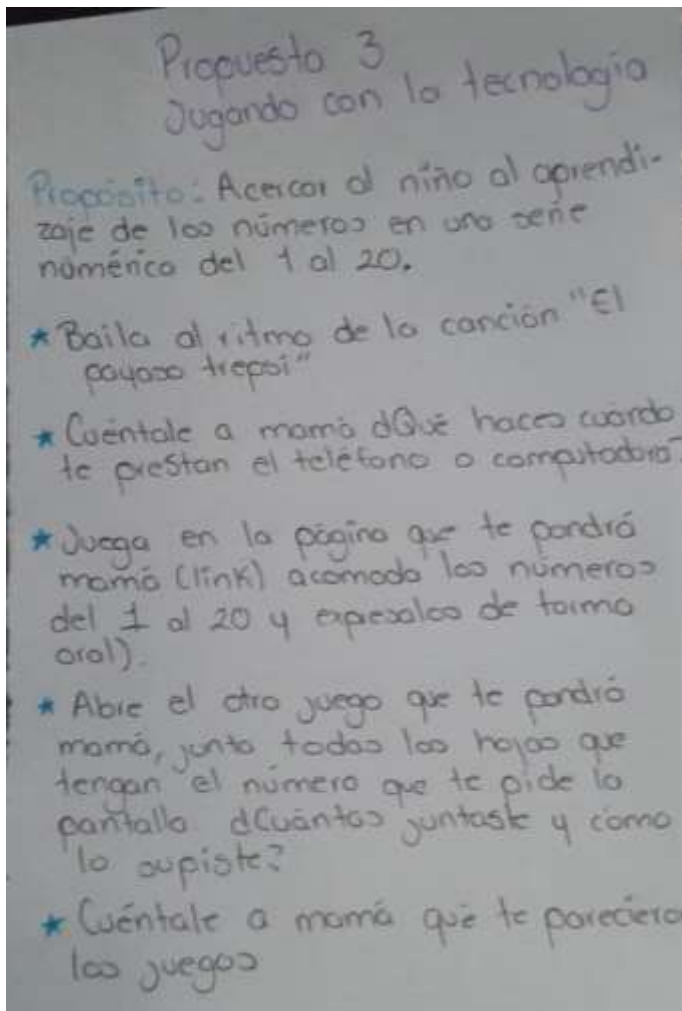 Propuesta 3
Jugando con la tecnología
Propósito: Acercar al niño al aprendi-
zaje de los números en una serie
númérica del 1 al 20.
* Baila al ritmo de la canción "El
payaso trepsi"
* Cuéntale a mamá ¿Qué haces cuando
te prestan el teléfono o computadora?
* Juega en la página que te pondrá
mamá (link) acomoda los números
del 1 al 20 y expresalos de forma
oral).
* Abre el otro juego que te pondrá
mamá, junta todas las hojas que
tengan el número que te pide la
pantalla ¿Cuántas juntaste y cómo
lo supiste?
* Cuéntale a mamá qué te pareciero
los juegos